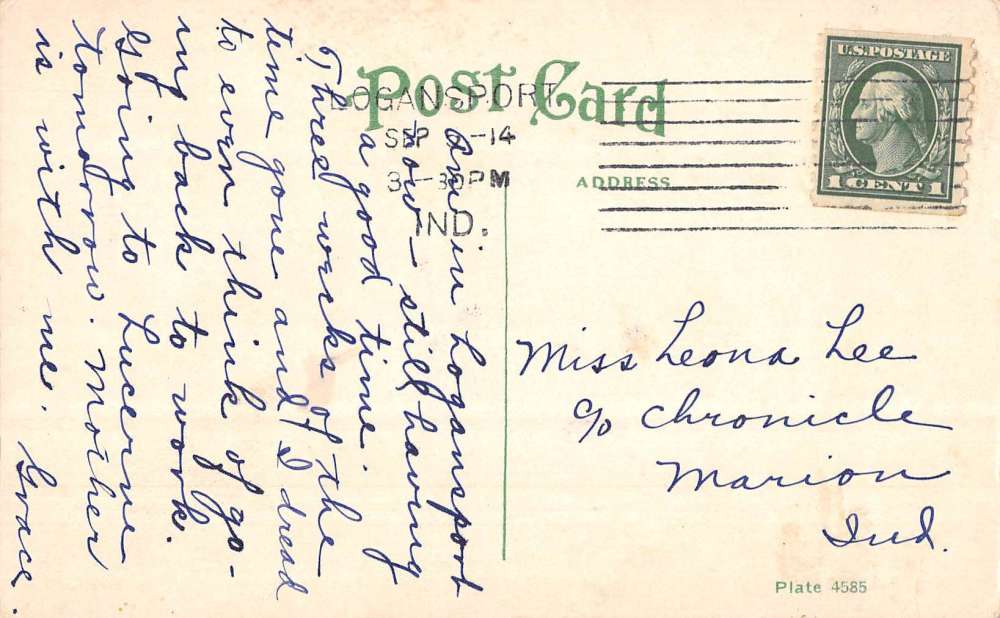 Post Card
LOGANSPORT
SEP -14
3-30PM
IND.
U.S. POSTAGE
1 CENT 1
ADDRESS
Am in Logansport
now - still having
a good time.
Three weeks of the
time gone and I dread
to even think of go-
ing back to work.
Going to Lucerne
tomorrow. Mother
is with me. Grace.
Miss Leona Lee
c/o Chronicle
Marion
Ind.
Plate 4585